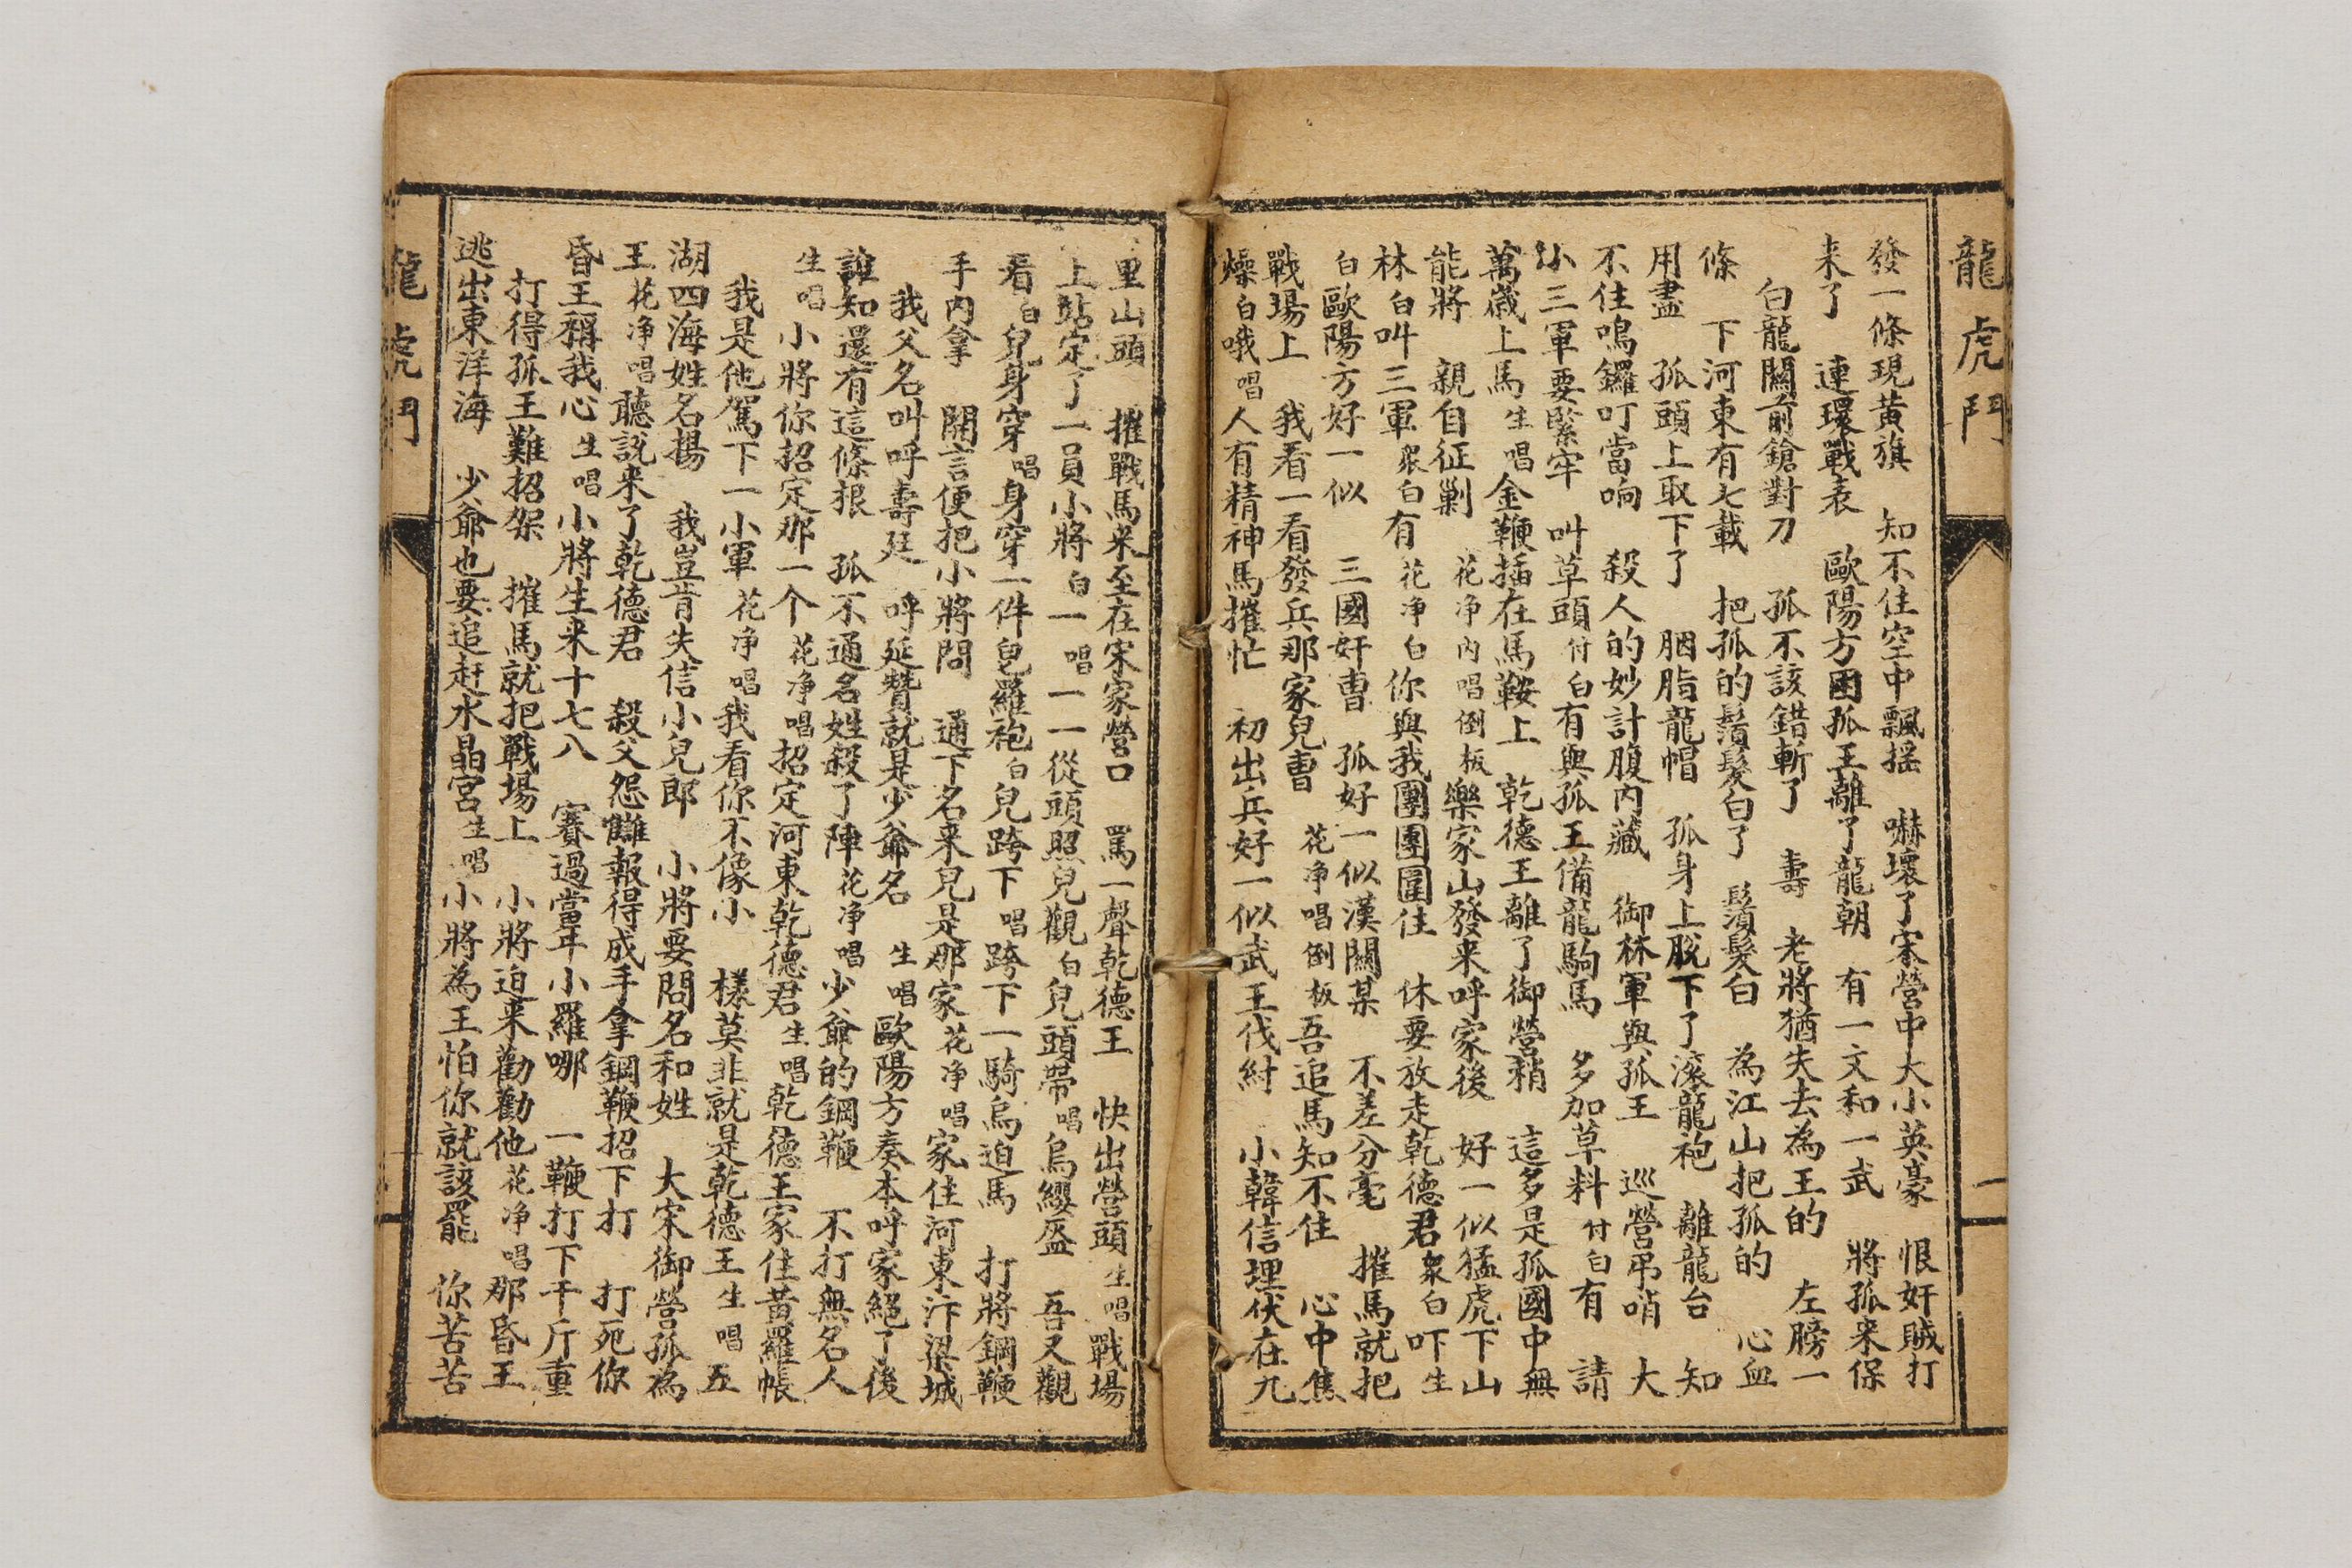 龍虎鬥
一
發一條現黃旗 知不住空中飄搖 嚇壞了宋營中大小英豪 恨奸賊打
来了 連環戰表 歐陽方困孤王離了龍朝 有一文和一武 將孤来保
白龍關前鎗對刀 孤不該錯斬了 壽 老將猶失去為王的 左膀一
條 下河東有七載 把孤的鬚髮白了 鬚髮白 為江山把孤的 心血
用盡 孤頭上取下了 胭脂龍帽 孤身上脫下了滚龍袍 離龍台 知
不住鳴鑼叮當响 殺人的妙計腹内藏 御林軍與孤王 巡營吊哨 大
小三軍要緊牢 叫草頭付白有與孤王備龍駒馬 多加草料付白有 請
萬歲上馬生唱金鞭插在馬鞍上 乾德王離了御營稍 這多是孤國中無
能將 親自征剿 花净内唱倒板樂家山發来呼家後 好一似猛虎下山
林白叫三軍衆白有花净白你與我團團圍住 休要放走乾德君衆白吓生
白歐陽方好一似 三國奸曹 孤好一似漢關某 不差分毫 摧馬就把
戰場上 我看一看發兵那家兒曹 花净唱倒板吾追馬知不住 心中焦
燥白哦唱人有精神馬摧忙 初出兵好一似武王伐紂 小韓信埋伏在九
里山頭 摧戰馬来至在宋家營口 罵一聲乾德王 快出營頭生唱戰場
上站定了一員小將白一唱一一從頭照兒觀白兒頭帶唱烏纓盔 吾又觀
看白兒身穿唱身穿一件皂羅袍白兒跨下唱跨下一騎烏迫馬 打將鋼鞭
手内拿 開言便把小將問 通下名来兒是那家花净唱家住河東汴梁城
我父名叫呼壽廷 呼延贊就是少爺名 生唱歐陽方奏本呼家絕了後
誰知還有這條根 孤不通名姓殺了陣花净唱少爺的鋼鞭 不打無名人
生唱小將你招定那一个花净唱招定河東乾德君生唱乾德王家住黃羅帳
我是他駕下一小軍花净唱我看你不像小 樣莫非就是乾德王生唱五
湖四海姓名揚 我豈肯失信小兒郎 小將要問名和姓 大宋御營孤為
王花净唱聽說来了乾德君 殺父怨讎報得成手拿鋼鞭招下打 打死你
昏王稱我心生唱小將生来十七八 賽過當年小羅哪 一鞭打下千斤重
打得孤王難招架 摧馬就把戰場上 小將迫来勸勸他花净唱那昏王
逃出東洋海 少爺也要追赶水晶宮生唱小將為王怕你就該罷 你苦苦
龍虎鬥